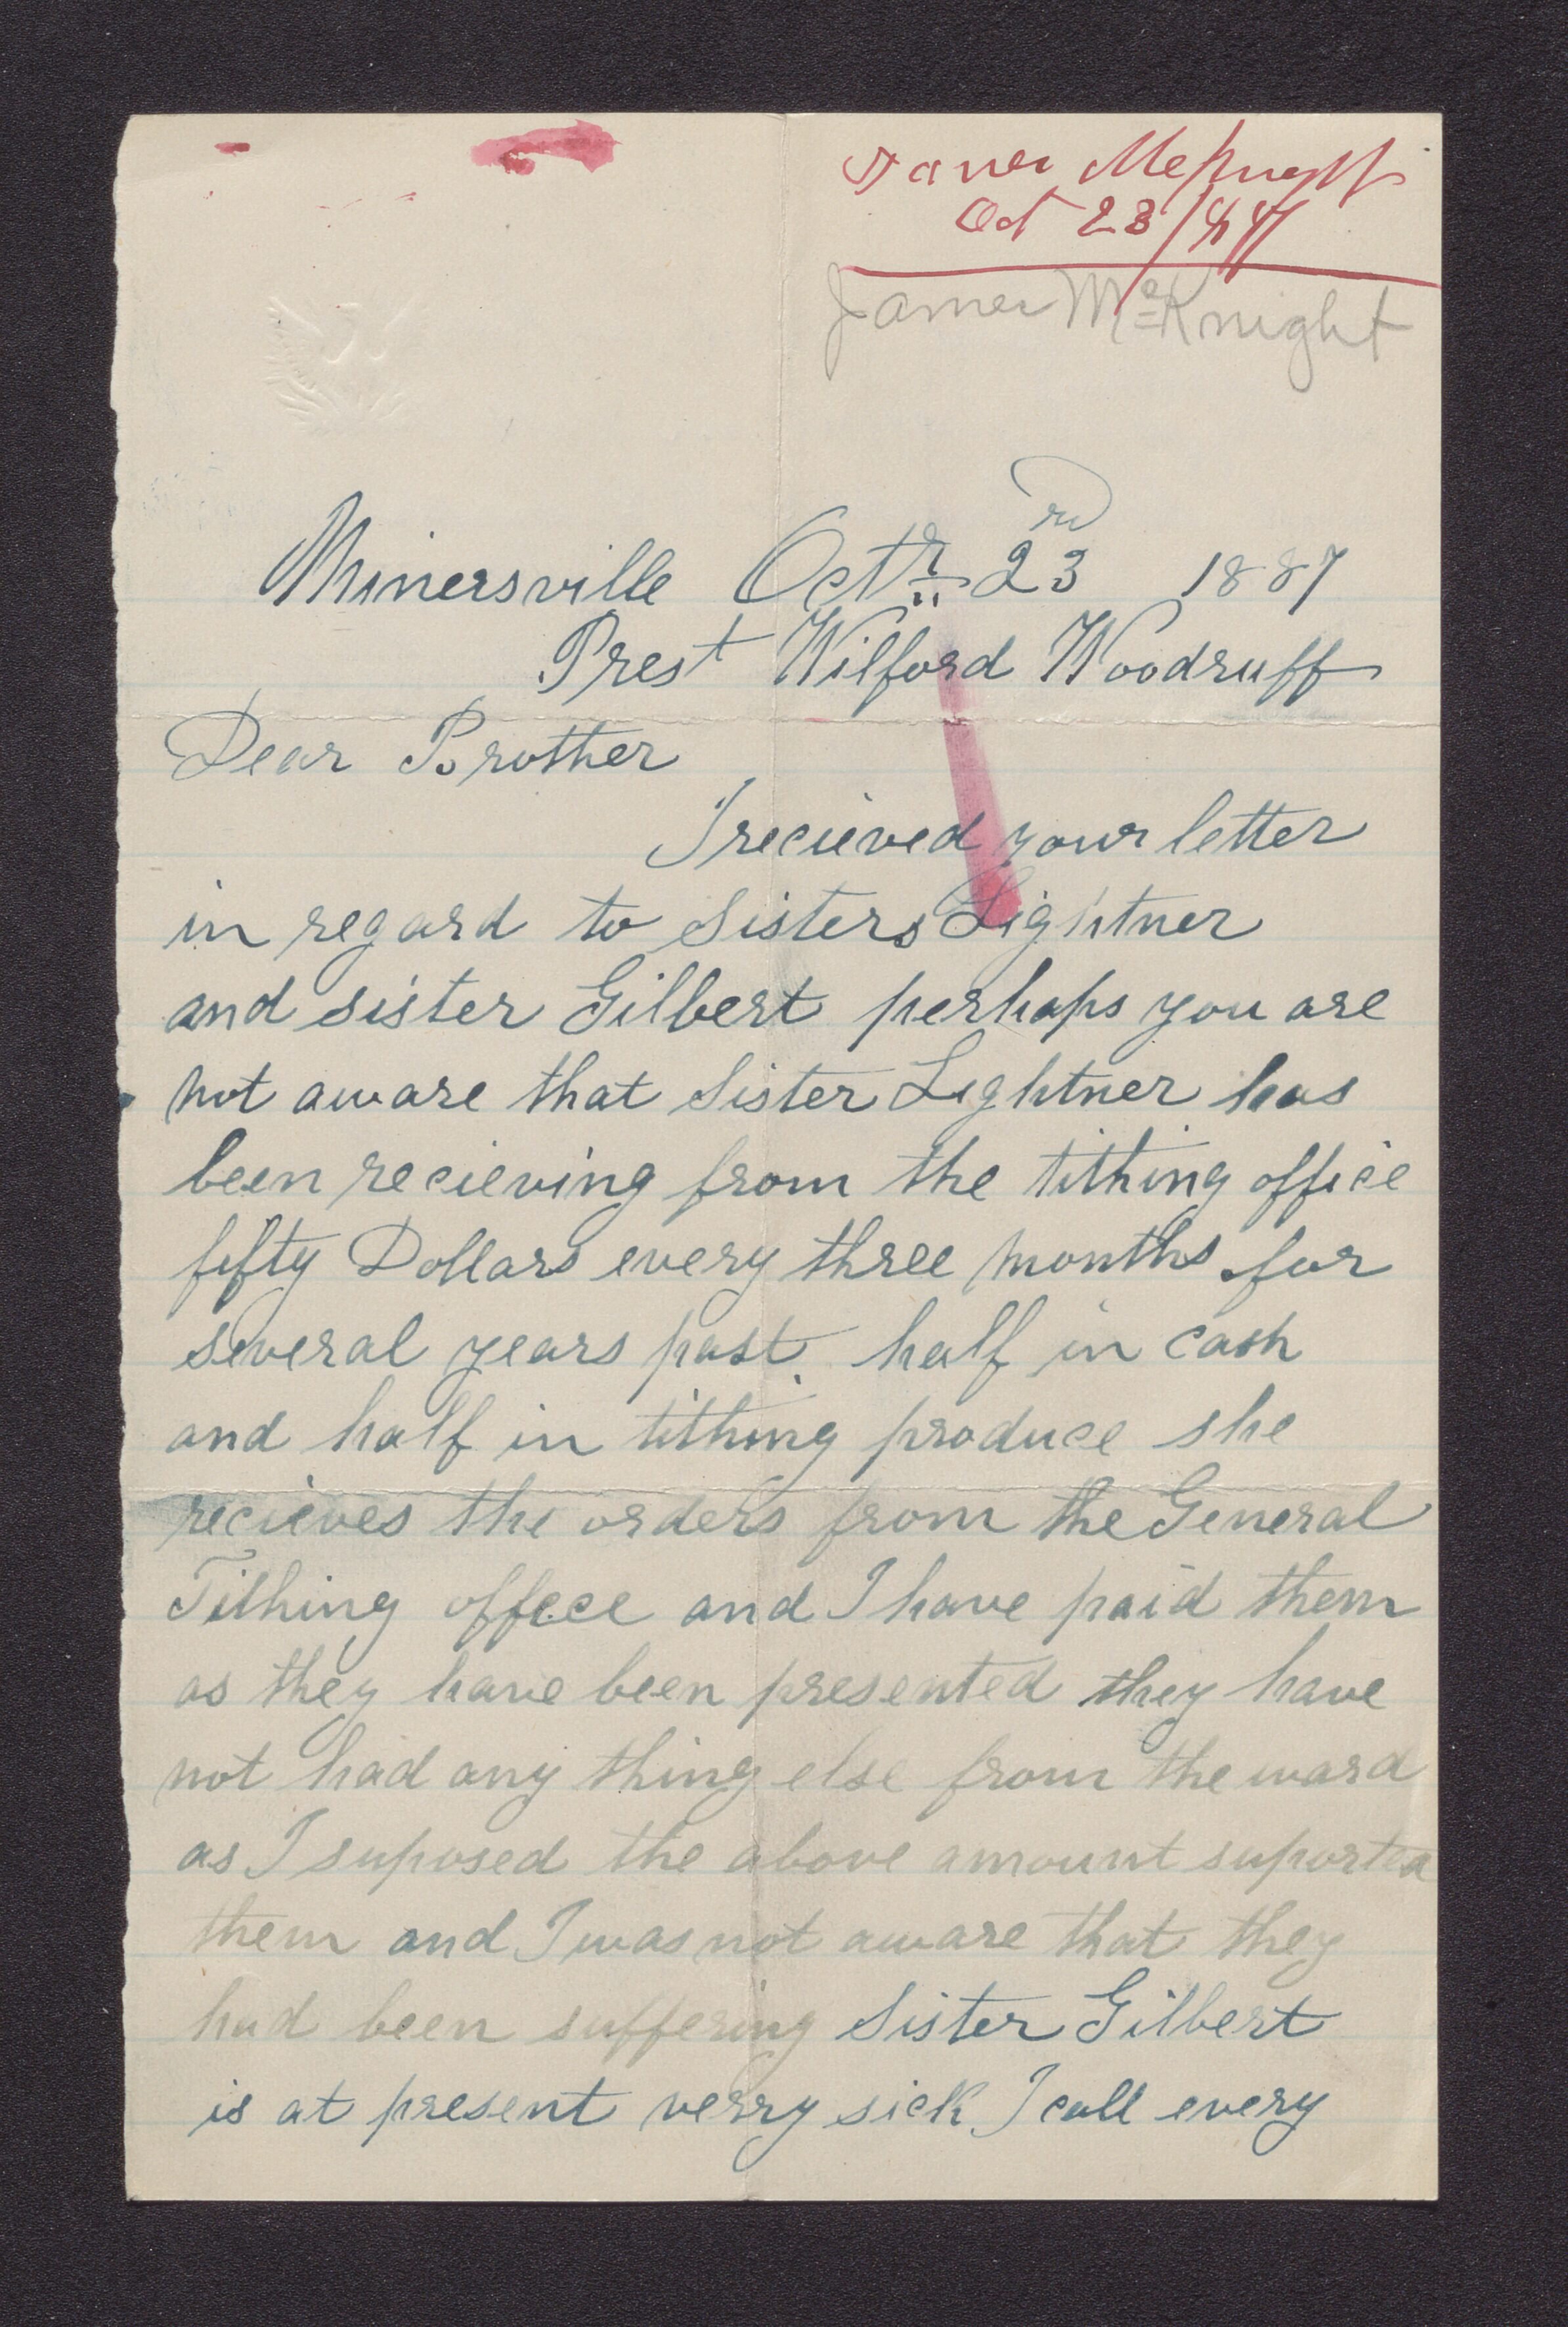 James McKnight
Oct 23/87
James McKnight
Minersville Octr 23rd 1887
Prest Wilford Woodruff
Dear Brother
I recieved your letter
in regard to Sisters Lightner
and sister Gilbert perhaps you are
not aware that Sister Lightner has
been recieving from the tithing office
fifty Dollars every three months for
several years past. half in cash
and half in tithing produce she
recieves the orders from the General
Tithing office and I have paid them
as they have been presented they have
not had any thing else from the ward
as I suposed the above amount suported
them and I was not aware that they
had been suffering Sister Gilbert
is at present verry sick I call every